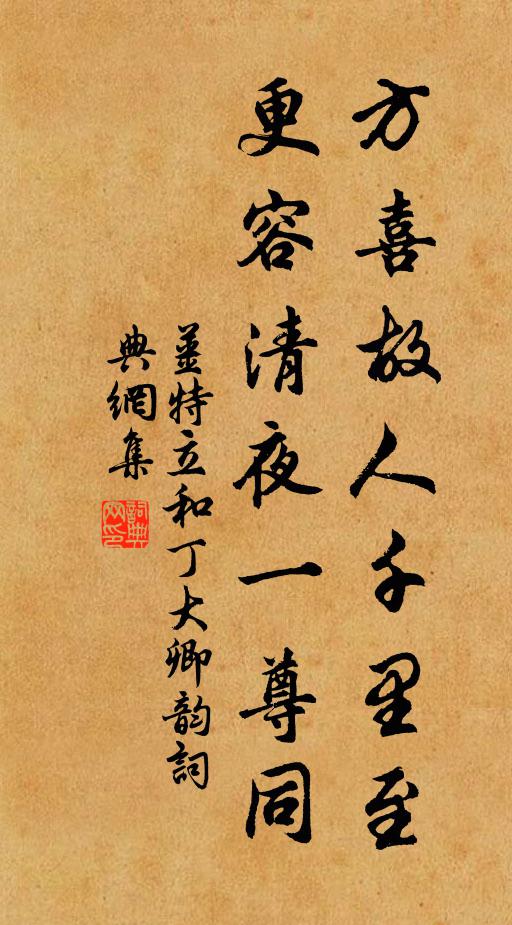 方喜故人千里至
更容清夜一尊同
姜特立和丁大卿韵詞
典網集
詞典
网印